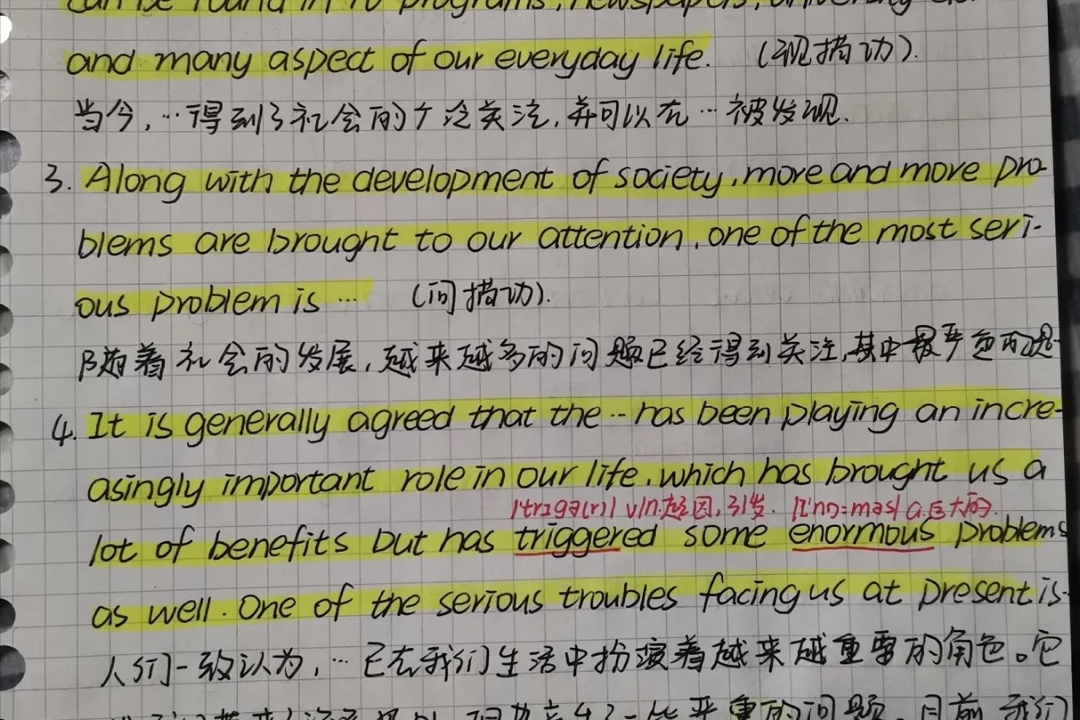 can be found in TV programs, newspapers,
and many aspect of our everyday life. (现描功).
当今,…得到了社会的广泛关注,并可以在…被发现.
3. Along with the development of society, more and more pro-
blems are brought to our attention, one of the most seri-
ous problem is … (问描功).
随着社会的发展,越来越多的问题已经得到关注,其中最严
4. It is generally agreed that the … has been playing an incre-
asingly important role in our life, which has brought us a
/'trɪgə(r)/ v/n.起因,引发. /ɪ'nɔ:məs/ a.巨大的.
lot of benefits but has triggered some enormous problems
as well. One of the serious troubles facing us at present is
人们一致认为,…已在我们生活中扮演着越来越重要的角色。它
严重的问题,目前我们